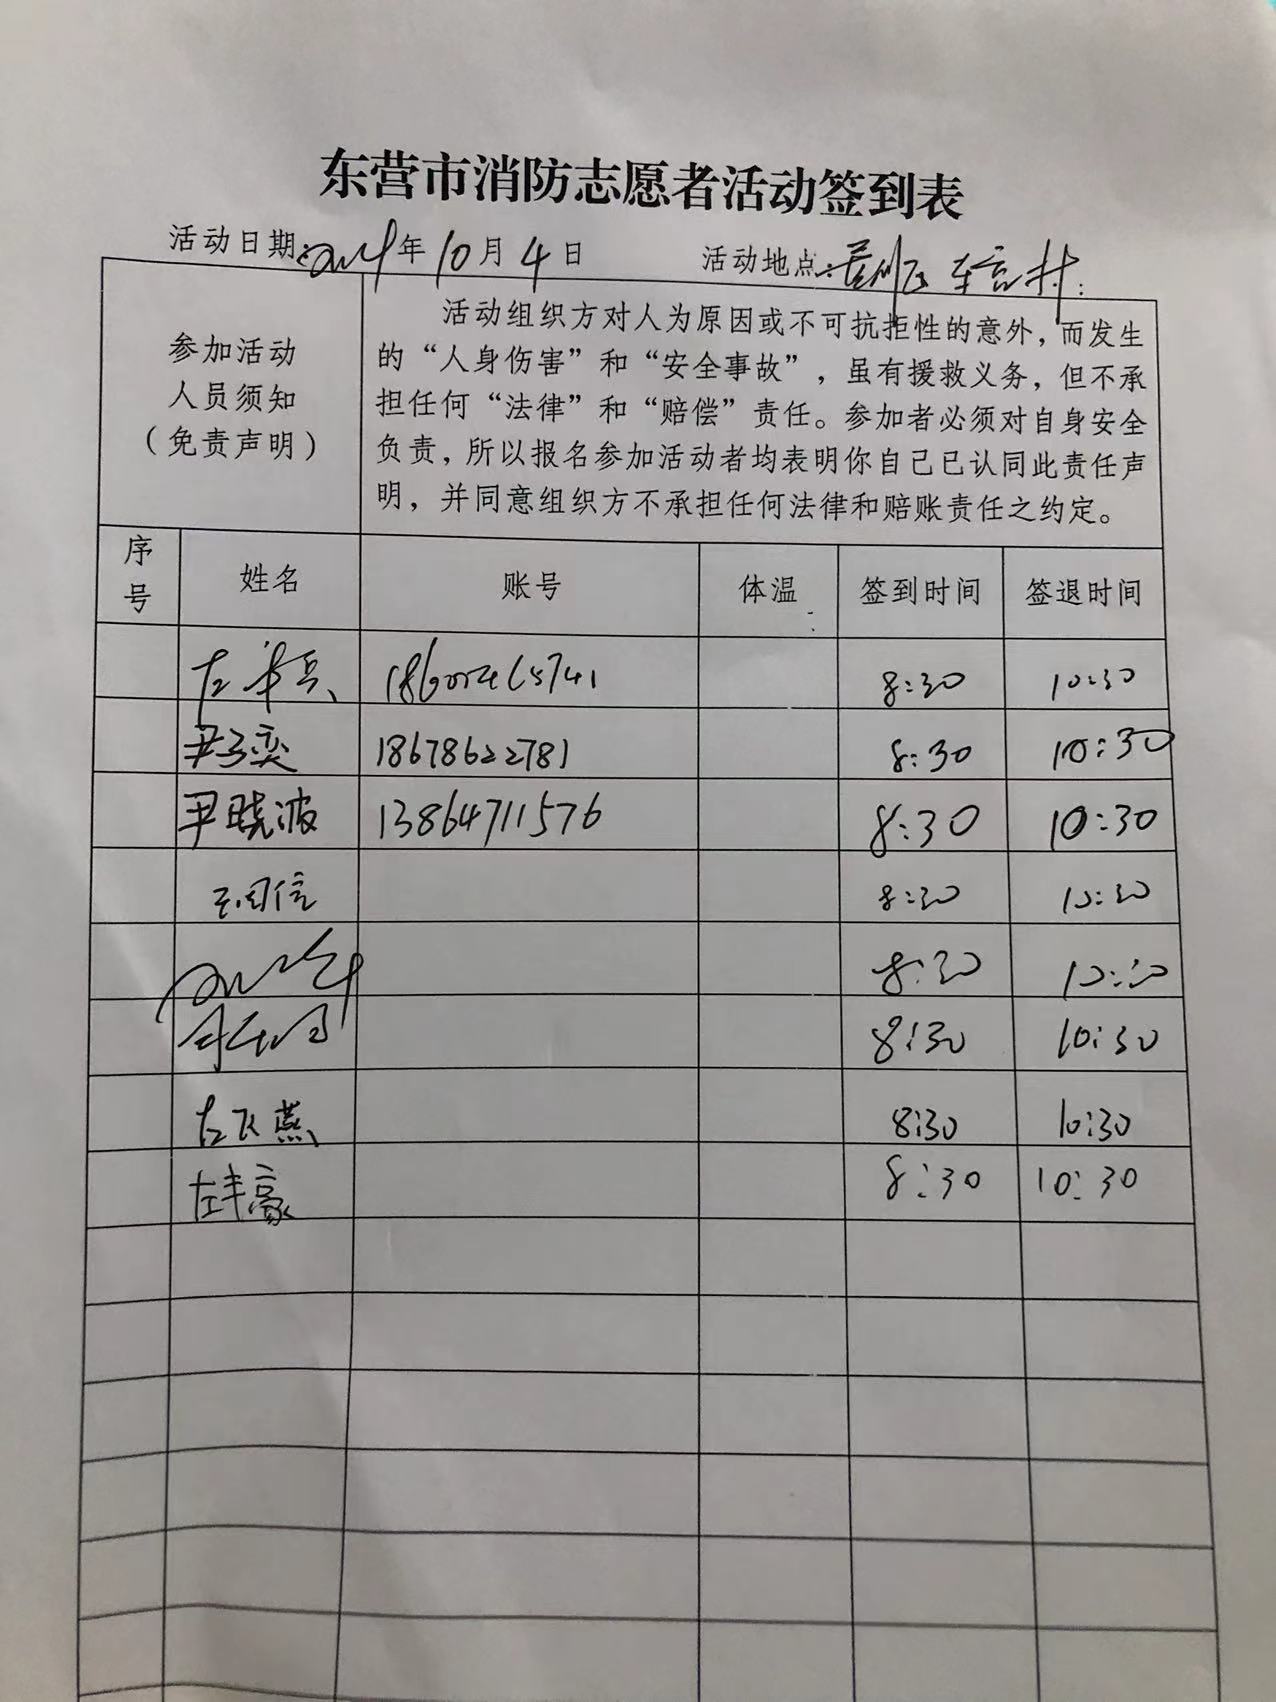 东营市消防志愿者活动签到表
活动日期: 年10月4日 活动地点: 村
参加活动
人员须知
（免责声明）
活动组织方对人为原因或不可抗拒性的意外，而发生
的“人身伤害”和“安全事故”，虽有援救义务，但不承
担任何“法律”和“赔偿”责任。参加者必须对自身安全
负责，所以报名参加活动者均表明你自己已认同此责任声
明，并同意组织方不承担任何法律和赔账责任之约定。
序号 姓名 账号 体温 签到时间 签退时间
左 兵 8:30 10:30
尹子奕 18678622781 8:30 10:30
尹晓波 13864711576 8:30 10:30
信 8:30 10:30
8:30 10:30
8:30 10:30
左飞燕 8:30 10:30
左丰豪 8:30 10:30